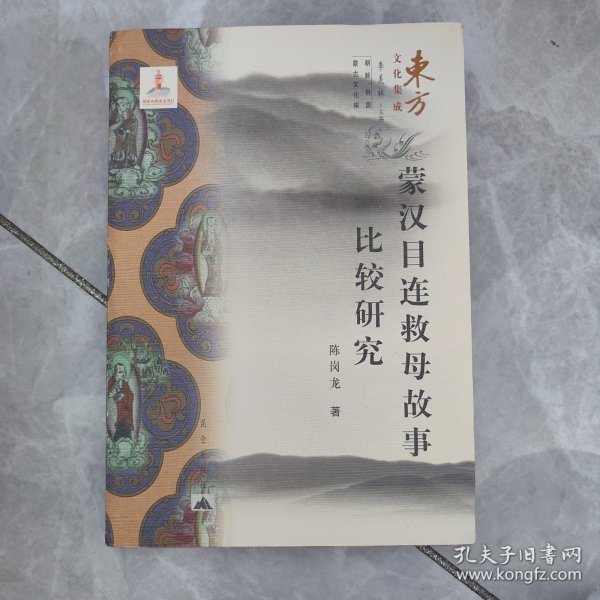 東方
文化集成
季羡林
朝鲜 韩国
蒙古文化编
蒙汉目连救母故事
比较研究
陈岗龙 著
昆仑出版社
孔夫子旧书网
www.kongfz.com